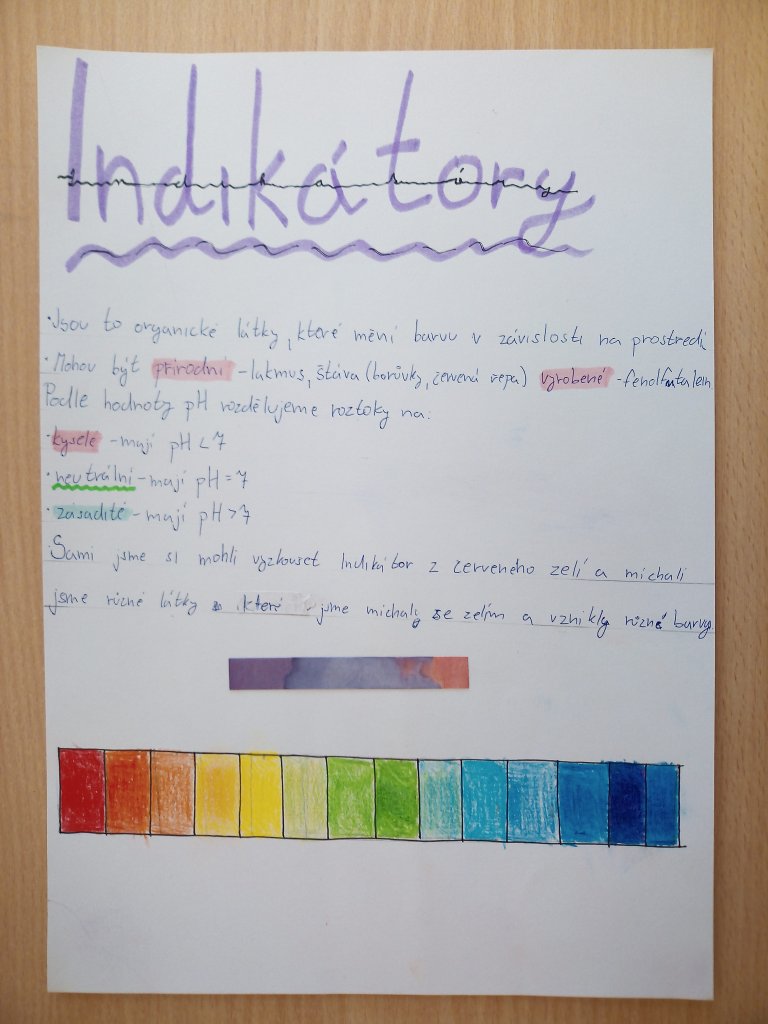 Indikátory
Indikátory
•Jsou to organické látky, které mění barvu v závislosti na prostředí
•Mohou být přírodní - lakmus, šťáva (borůvky, červená řepa) vyrobené - fenolftalein
Podle hodnoty pH rozdělujeme roztoky na:
•kyselé - mají pH < 7
•neutrální - mají pH = 7
•zásadité - mají pH > 7
Sami jsme si mohli vyzkoušet Indikátor z červeného zelí a míchali
jsme různé látky které jsme míchaly se zelím a vznikly různé barvy